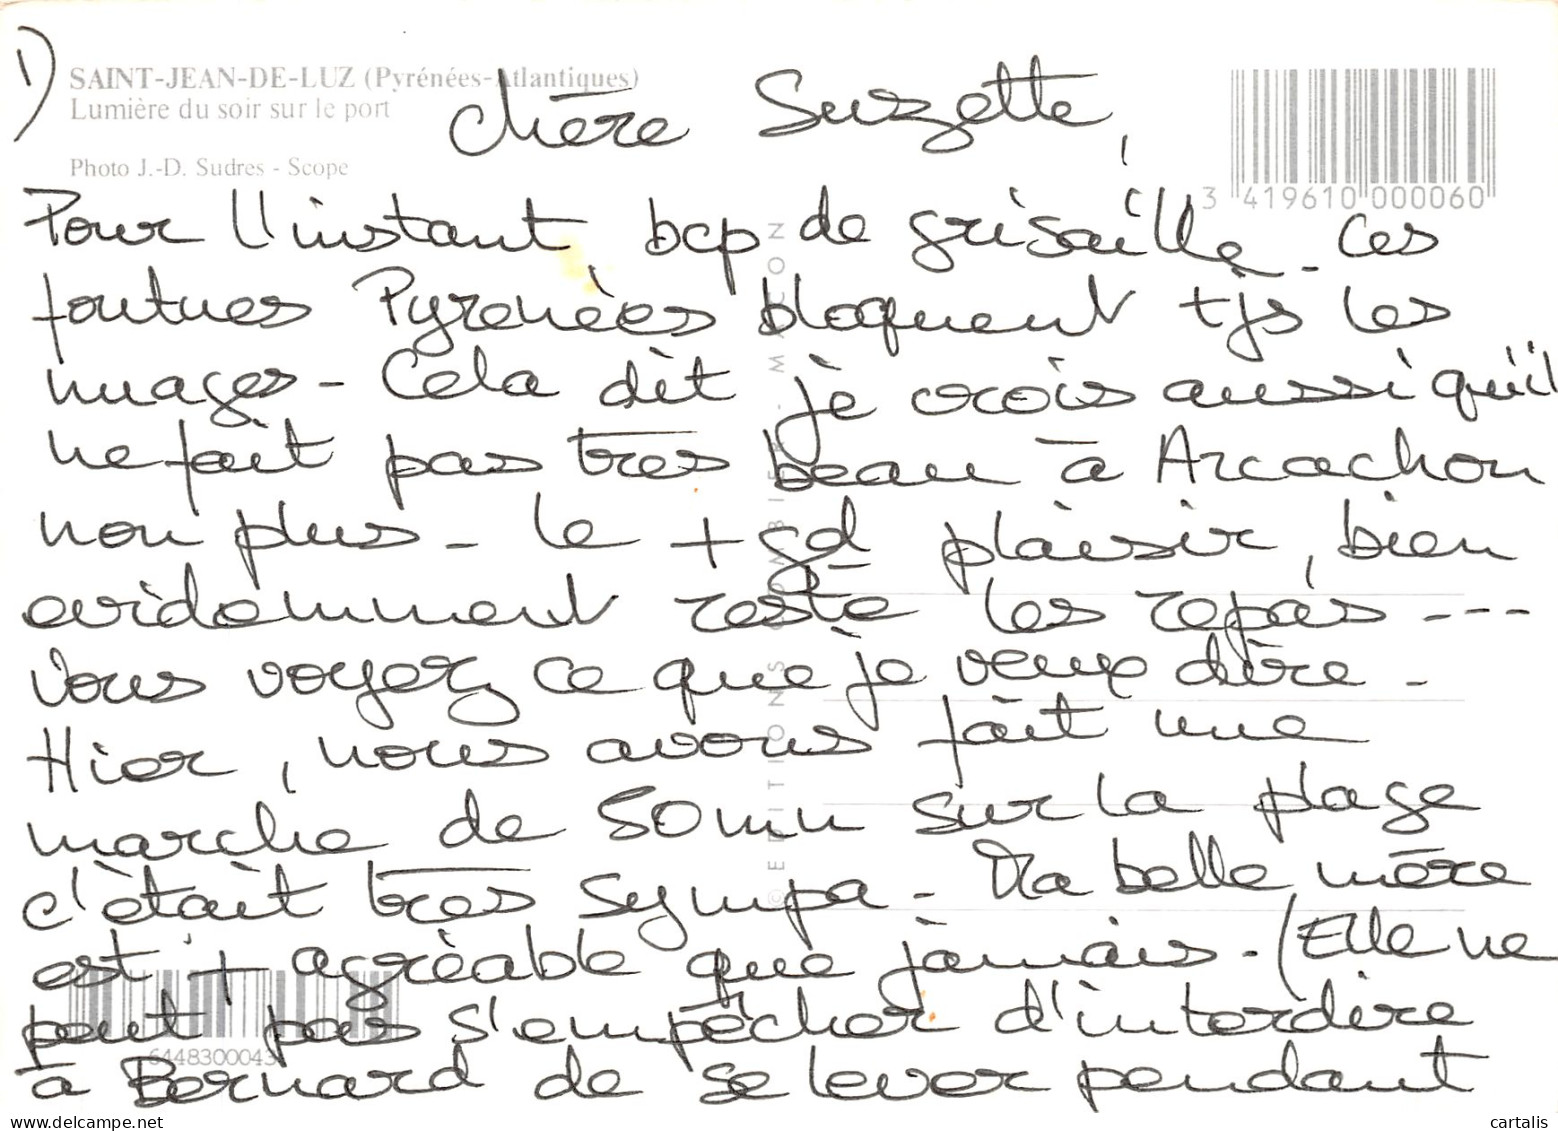 1)
SAINT-JEAN-DE-LUZ (Pyrénées-Atlantiques)
Lumière du soir sur le port
Photo J.-D. Sudres - Scope
3 419610 000060
Chère Suzette,
Pour l'instant, bcp de grisaille - Ces
foutues Pyrenées bloquent tjs les
nuages - Cela dit je crois aussi qu'il
ne fait pas très beau à Arcachon
non plus - le + gd plaisir, bien
evidemment reste les repas ---
Vous voyez ce que je veux dire -
Hier, nous avons fait une
marche de 50mn sur la plage
c'était très sympa - Ma belle mère
est + agréable que jamais - (Elle ne
peut pas s'empêcher d'interdire
à Bernard de se lever pendant
© EDITIONS COMBIER - MACON
6448300043
delcampe.net
cartalis